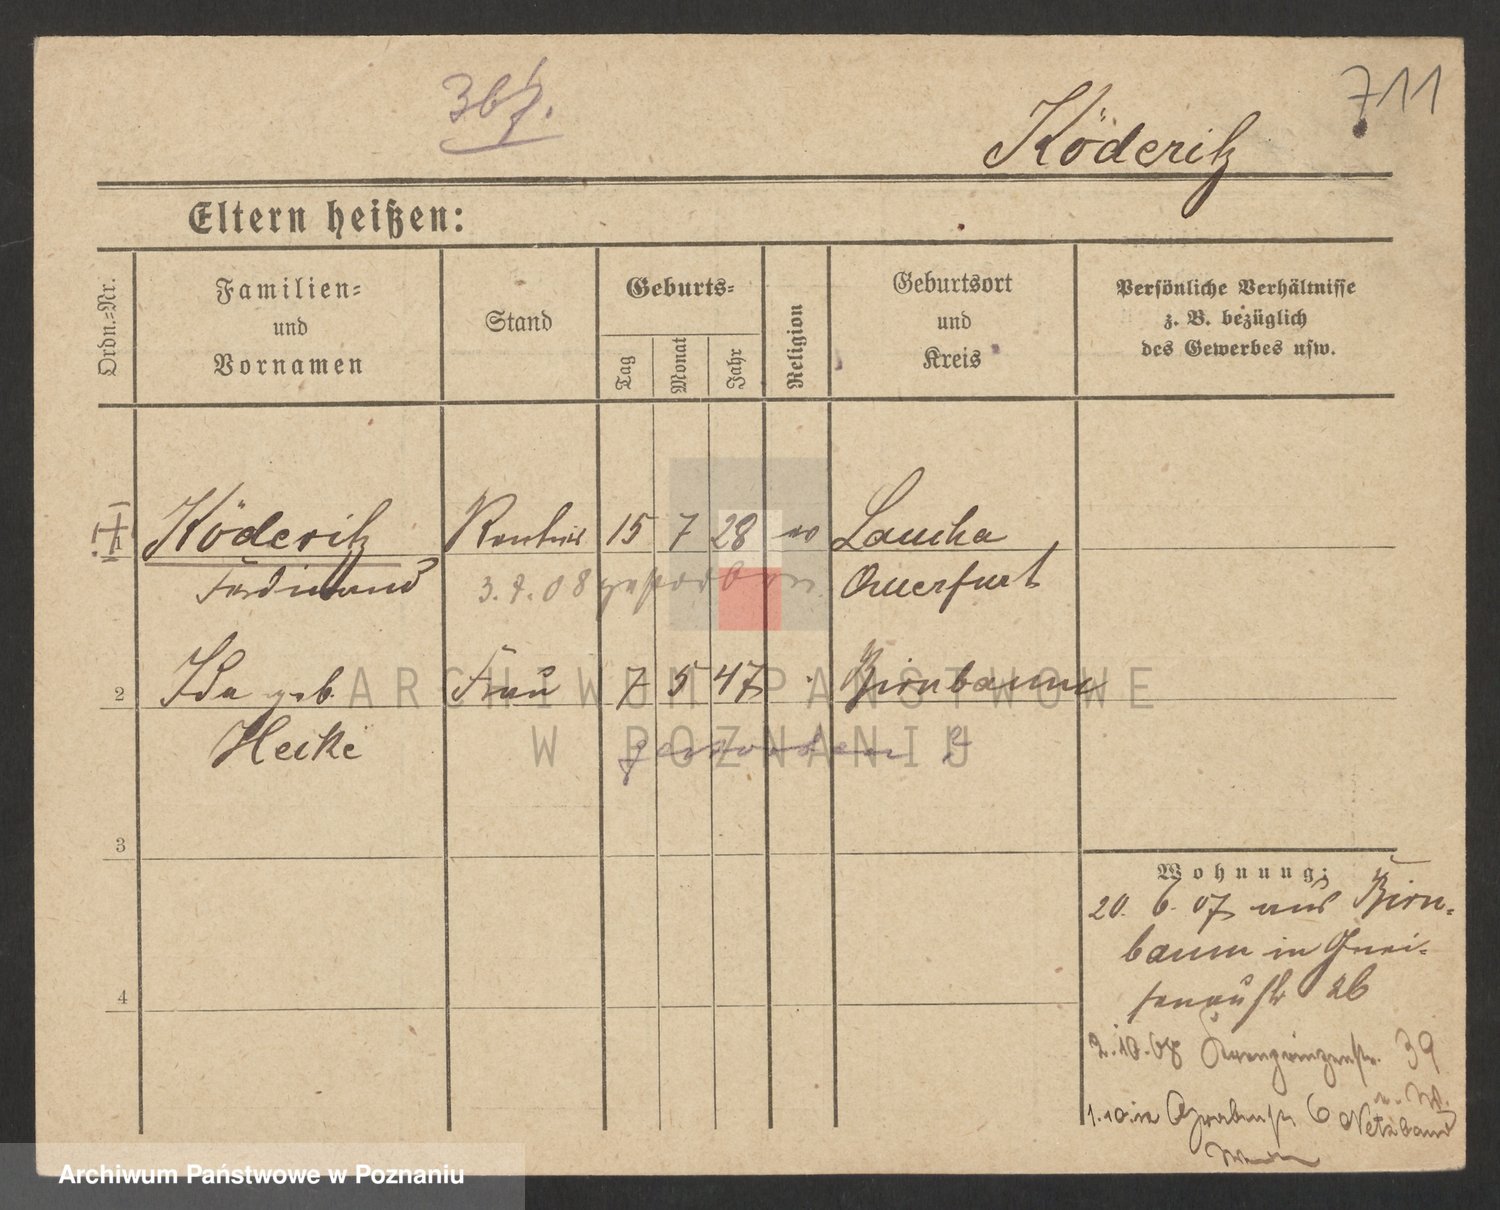 711
Köderitz
Eltern heißen:
Ordn.-Nr.
Familien-
und
Vornamen
Stand
Geburts-
Tag
Monat
Jahr
Religion
Geburtsort
und
Kreis
Persönliche Verhältnisse
z. B. bezüglich
des Gewerbes usw.
Köderitz Rentier 15 7 28 Laucha
Ferdinand 3.7.08 gestorben Querfurt
2 Ida geb. Frau 7 5 47 Birnbaum
Heike gestorben
3
4
Wohnung:
20. 6. 07 aus Birn-
baum in Gnei-
senaustr 26
2.10.08 Kronprinzenstr. 39
1.10. Grabenstr 6
ARCHIWUM PAŃSTWOWE
W POZNANIU
Archiwum Państwowe w Poznaniu